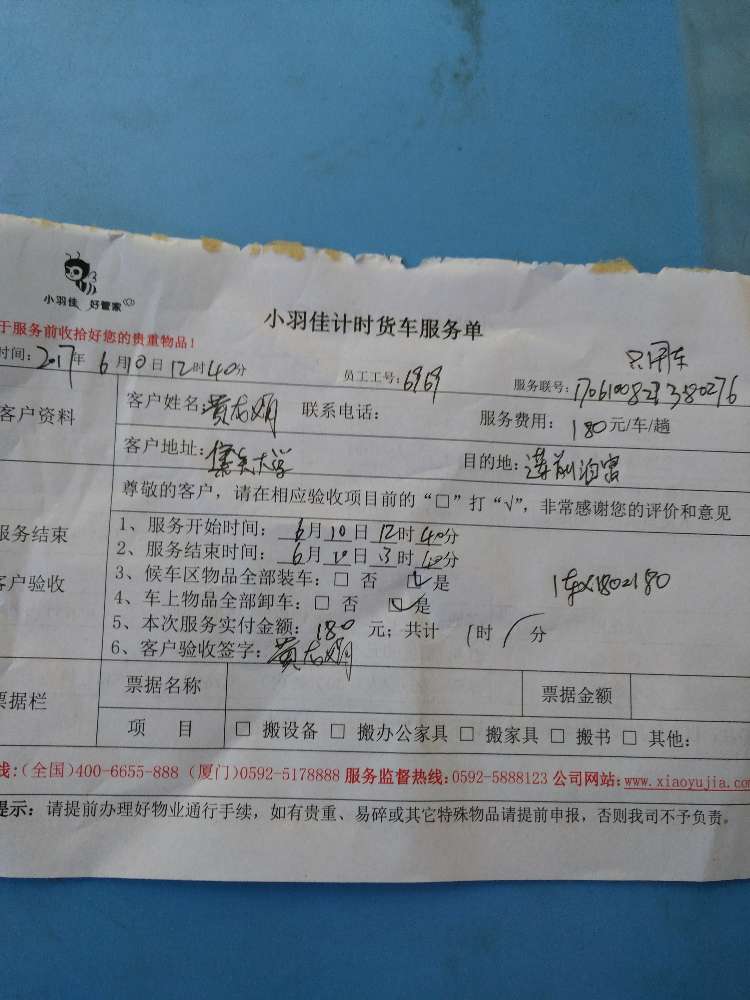 小羽佳 好管家
小羽佳计时货车服务单
于服务前收拾好您的贵重物品!
只用车
时间: 2017年 6月10日12时40分 员工工号: 6969 服务联号:
客户资料 客户姓名: 联系电话: 服务费用: 180元/车/趟
客户地址: 集美大学 目的地: 莲前
尊敬的客户，请在相应验收项目前的“□”打“√”，非常感谢您的评价和意见
服务结束
客户验收
1、服务开始时间: 6月10日12时40分
2、服务结束时间: 6月10日13时40分
3、候车区物品全部装车: □ 否 □√是
4、车上物品全部卸车: □ 否 □√是
1车x180=180
5、本次服务实付金额: 180 元; 共计 1时 / 分
6、客户验收签字:
票据栏 票据名称 票据金额
项 目 □ 搬设备 □ 搬办公家具 □ 搬家具 □ 搬书 □ 其他:
线:(全国)400-6655-888 (厦门)0592-5178888 服务监督热线:0592-5888123 公司网站:www.xiaoyujia.com
提示: 请提前办理好物业通行手续，如有贵重、易碎或其它特殊物品请提前申报，否则我司不予负责。